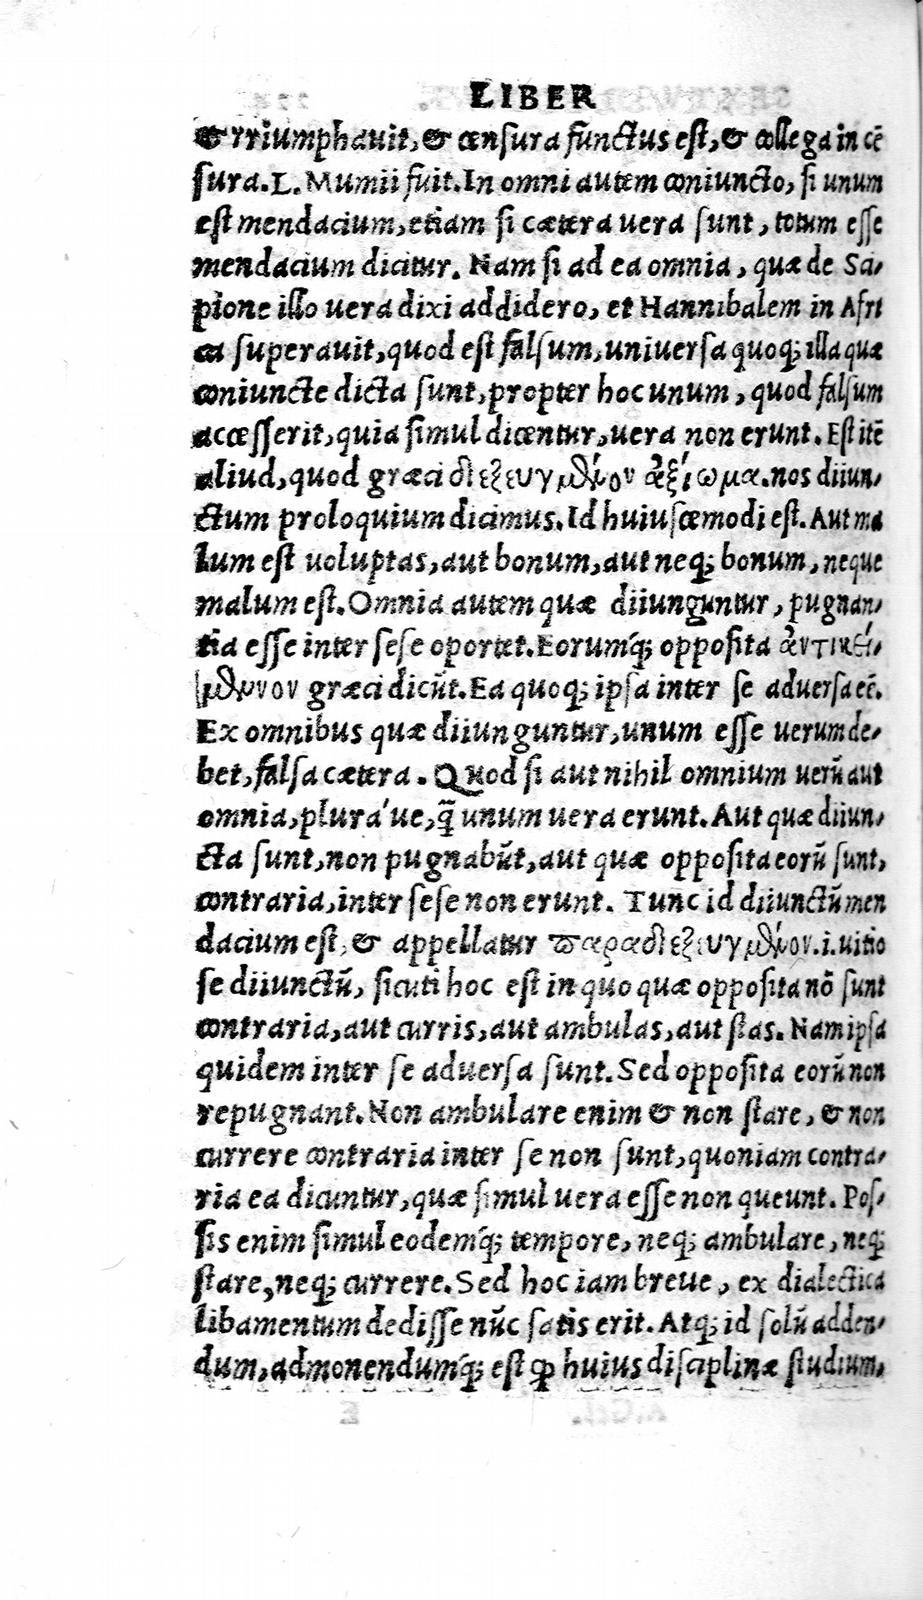 LIBER
& triumphauit, & censura functus est, & collega in cē
sura. L. Mumii fuit. In omni autem coniuncto, si unum
est mendacium, etiam si cætera uera sunt, totum esse
mendacium dicitur. Nam si ad ea omnia, quæ de Sci-
pione illo uera dixi addidero, et Hannibalem in Afri
ca superauit, quod est falsum, uniuersa quoq; illa quæ
coniuncte dicta sunt, propter hoc unum, quod falsum
accesserit, quia simul dicentur, uera non erunt. Est itē
aliud, quod græci διεζευγμένον ἀξίωμα. nos diiun-
ctum proloquium dicimus. Id huiuscemodi est. Aut ma
lum est uoluptas, aut bonum, aut neq; bonum, neque
malum est. Omnia autem quæ diiunguntur, pugnan-
tia esse inter sese oportet. Eorumq́; opposita ἀντικεί-
μενον græci dicūt. Ea quoq; ipsa inter se aduersa eē.
Ex omnibus quæ diiunguntur, unum esse uerum de-
bet, falsa cætera. Quod si aut nihil omnium uerū aut
omnia, plura'ue, q̃ unum uera erunt. Aut quæ diiun-
cta sunt, non pugnabūt, aut quæ opposita eorū sunt,
contraria, inter sese non erunt. Tunc id diiunctū men
dacium est, & appellatur παραδιεζευγμένον .i. uitio
se diiunctū, sicuti hoc est in quo quæ opposita nō sunt
contraria, aut curris, aut ambulas, aut stas. Nam ipsa
quidem inter se aduersa sunt. Sed opposita eorū non
repugnant. Non ambulare enim & non stare, & non
currere contraria inter se non sunt, quoniam contra-
ria ea dicuntur, quæ simul uera esse non queunt. Pos-
sis enim simul eodemq́; tempore, neq; ambulare, neq;
stare, neq; currere. Sed hoc iam breue, ex dialectica
libamentum dedisse nūc satis erit. Atq; id solū adden-
dum, admonendumq́; est ꝙ huius disciplinæ studium,